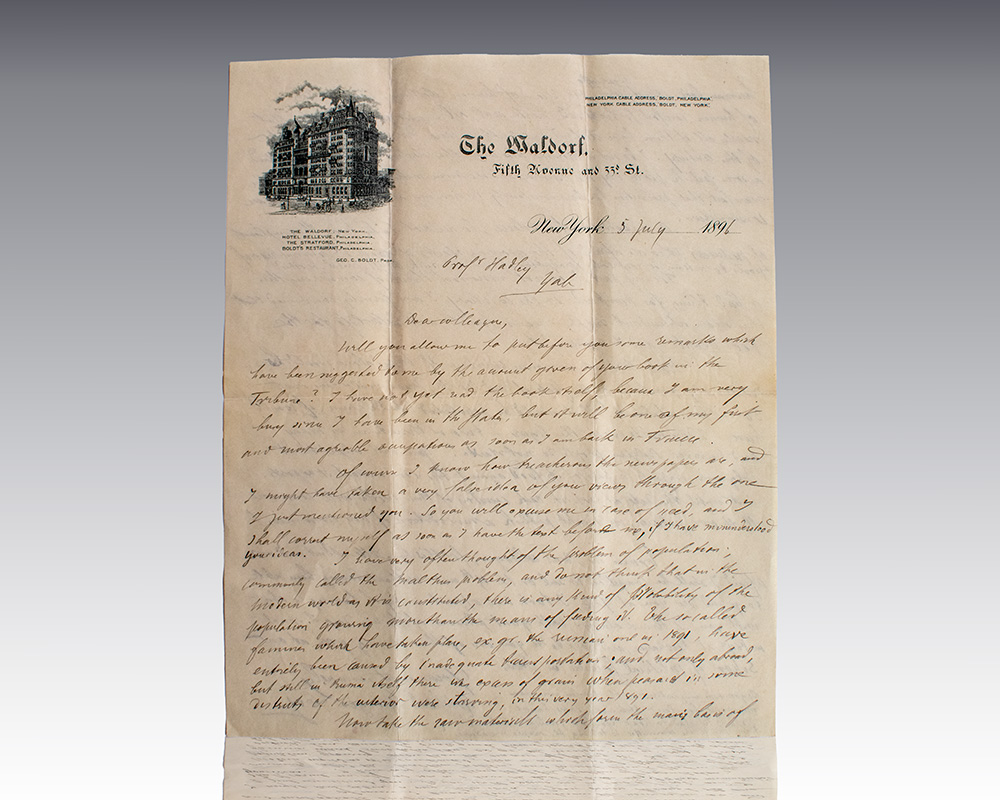 PHILADELPHIA CABLE ADDRESS, BOLDT, PHILADELPHIA.
NEW YORK CABLE ADDRESS, BOLDT, NEW YORK.
The Waldorf.
Fifth Avenue and 33d St.
New York 5 July 1896
THE WALDORF, NEW YORK.
HOTEL BELLEVUE, PHILADELPHIA.
THE STRATFORD, PHILADELPHIA.
BOLDT'S RESTAURANT, PHILADELPHIA.
GEO. C. BOLDT, PROP
Profr Hadley
Yale
Dear colleague,
Will you allow me to put before you some remarks which
have been suggested to me by the account given of your book in the
Tribune? I have not yet read the book itself, because I am very
busy since I have been in the States, but it will be one of my first
and most agreable occupations as soon as I am back in France.
Of course I know how treacherous the newspaper are, and
I might have taken a very false idea of your views through the one
I just mentioned you. So you will excuse me in case of need, and I
shall correct myself as soon as I have the text before me, if I have misunderstood
your ideas. I have very often thought of the problem of population,
commonly called the Malthus problem, and do not think that in the
modern world as it is constituted, there is any kind of probability of the
population growing more than the means of feeding it. The so called
famines which have taken place, ex. gr. the russian one in 1891, have
entirely been caused by inadequate transportation: and not only abroad,
but still in Russia itself there was excess of grain when peasants in some
districts of the interior were starving, in this very year 1891.
Now take the raw materials which form the main basis of